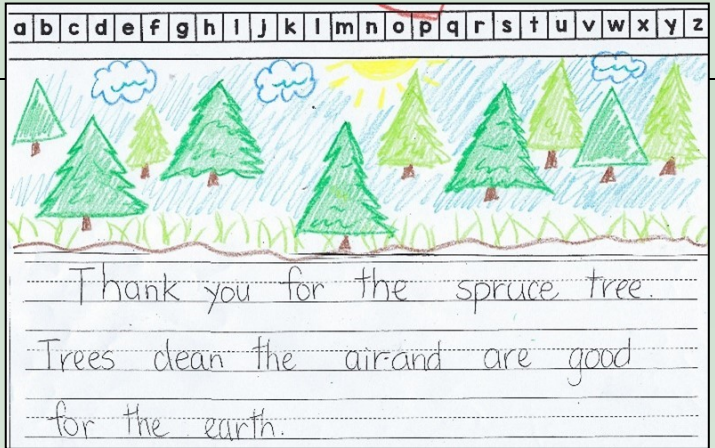 a b c d e f g h i j k l m n o p q r s t u v w x y z
Thank you for the spruce tree.
Trees clean the air and are good
for the earth.